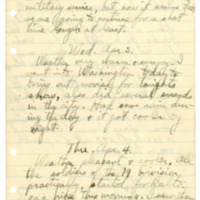 military service, but now it seems they
are going to continue for a short
time longer at least.
Wed. Apr. 3.
Weather very warm & sunny. I
went into Washington today to
bring out movies for tonights
show, also did several errands
in the city. Had some rain dur-
ing the day & it got cooler by
night.
Thu. Apr. 4.
Weather pleasant & cooler. All
the soldiers of the 79 Division
practically started for
on a hike this morning. I saw them